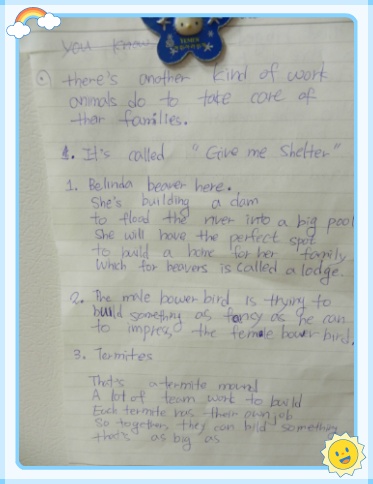 you know
there's another kind of work
animals do to take care of
their families.
1. It's called "Give me Shelter"
1. Belinda beaver here.
She's building a dam
to flood the river into a big pool
She will have the perfect spot
to build a home for her family
which for beavers is called a lodge.
2. The male bower bird is trying to
build something as fancy as he can
to impress the female bower bird.
3. Termites
That's a termite mound
A lot of team work to build
Each termite has their own job
So together, they can bild something
that's as big as